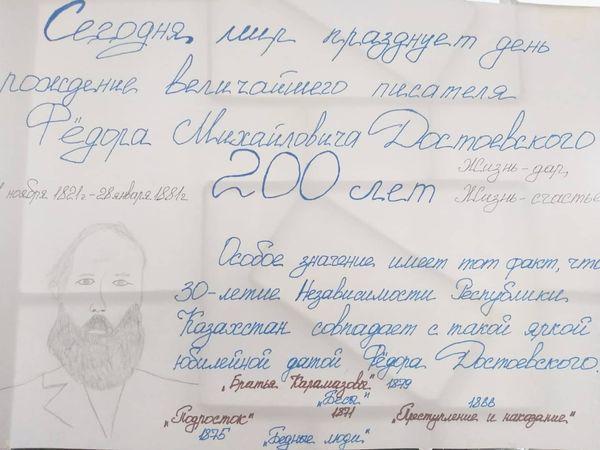 Сегодня мир празднует день
рождение величайшего писателя
Фёдора Михайловича Достоевского
200 лет
Жизнь-дар,
Жизнь-счастье
ноября 1821г-28 января 1881г
Особое значение имеет тот факт, что
30-летие Независимости Республики
Казахстан совпадает с такой яркой
юбилейной датой Фёдора Достоевского.
„Братья Карамазовы" 1879
„Бесы"
1871
„Подросток"
1875
„Бедные люди"
1866
„Преступление и наказание"